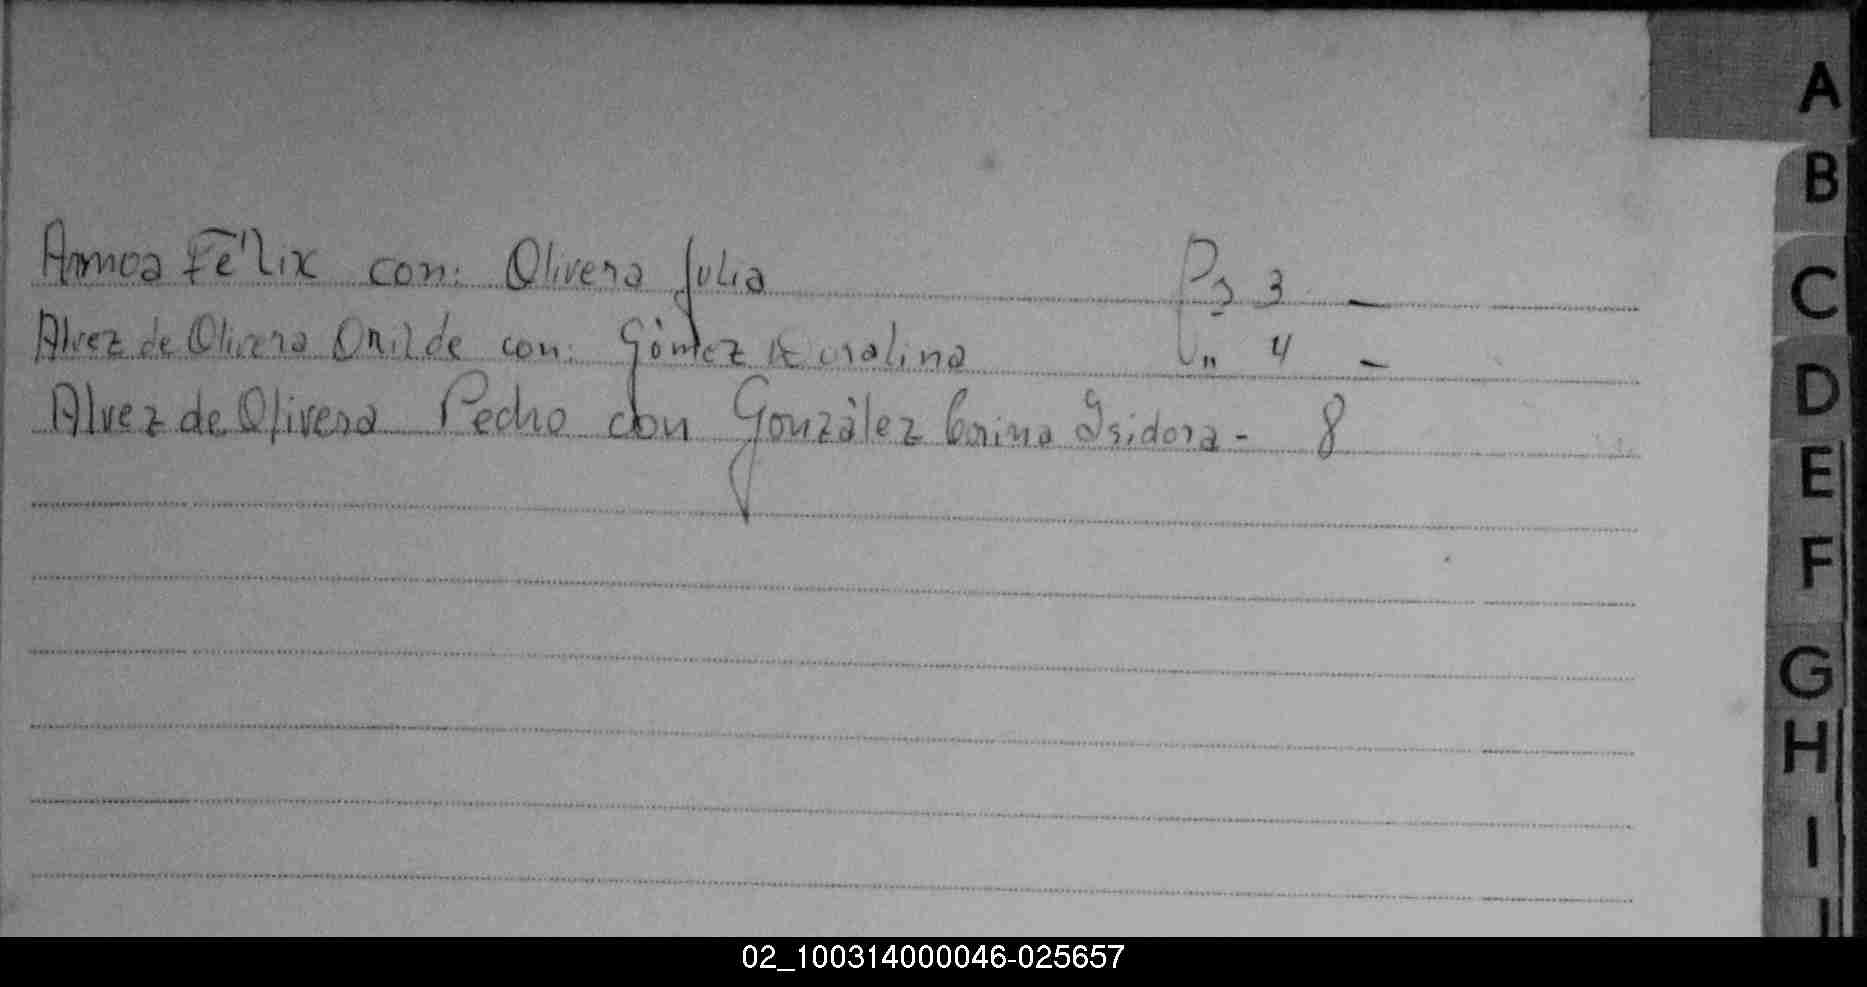 Armoa Félix con: Olivera Julia Pg 3 —
Alvez de Olivera Onilde con: Gómez Rosalina " 4 —
Alvez de Olivera Pedro con González Corina Isidora - 8
A
B
C
D
E
F
G
H
I
J
02_100314000046-025657